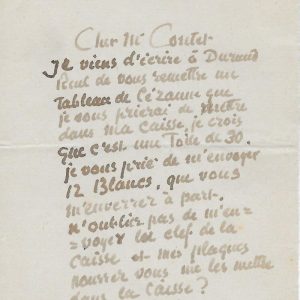 Cher Mr Contet
Je viens d'écrire à Durand
Ruel de vous remettre un
tableau de Cézanne que
je vous prierai de mettre
dans ma caisse, je crois
que c'est une Toile de 30.
je vous prie de m'envoyer
12 Blancs, que vous
m'enverrez à part.
n'oubliez pas de m'en=
=voyer la clef de la
caisse et mes plaques
pourrez vous me les mettre
dans la caisse ?